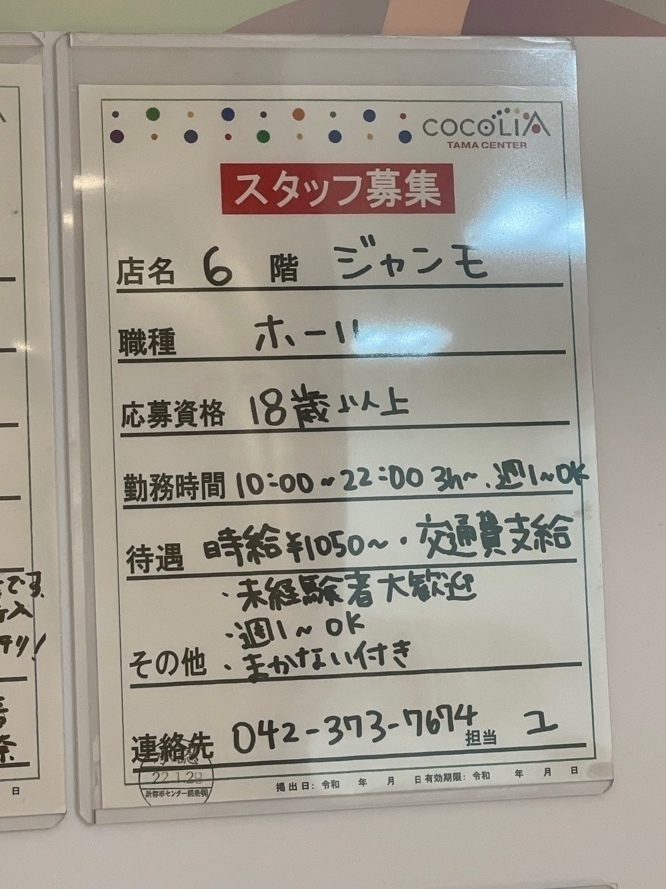 COCOLIA
TAMA CENTER
スタッフ募集
店名 6 階 ジャンモ
職種 ホール
応募資格 18歳以上
勤務時間 10:00~22:00 3h~、週1~OK
待遇 時給¥1050~・交通費支給
・未経験者大歓迎
・週1~OK
その他 ・まかない付き
連絡先 042-373-7674 担当 ユ
22.1.28
新都市センター開発㈱
掲出日:令和 年 月 日 有効期限:令和 年 月 日
です。
入
日